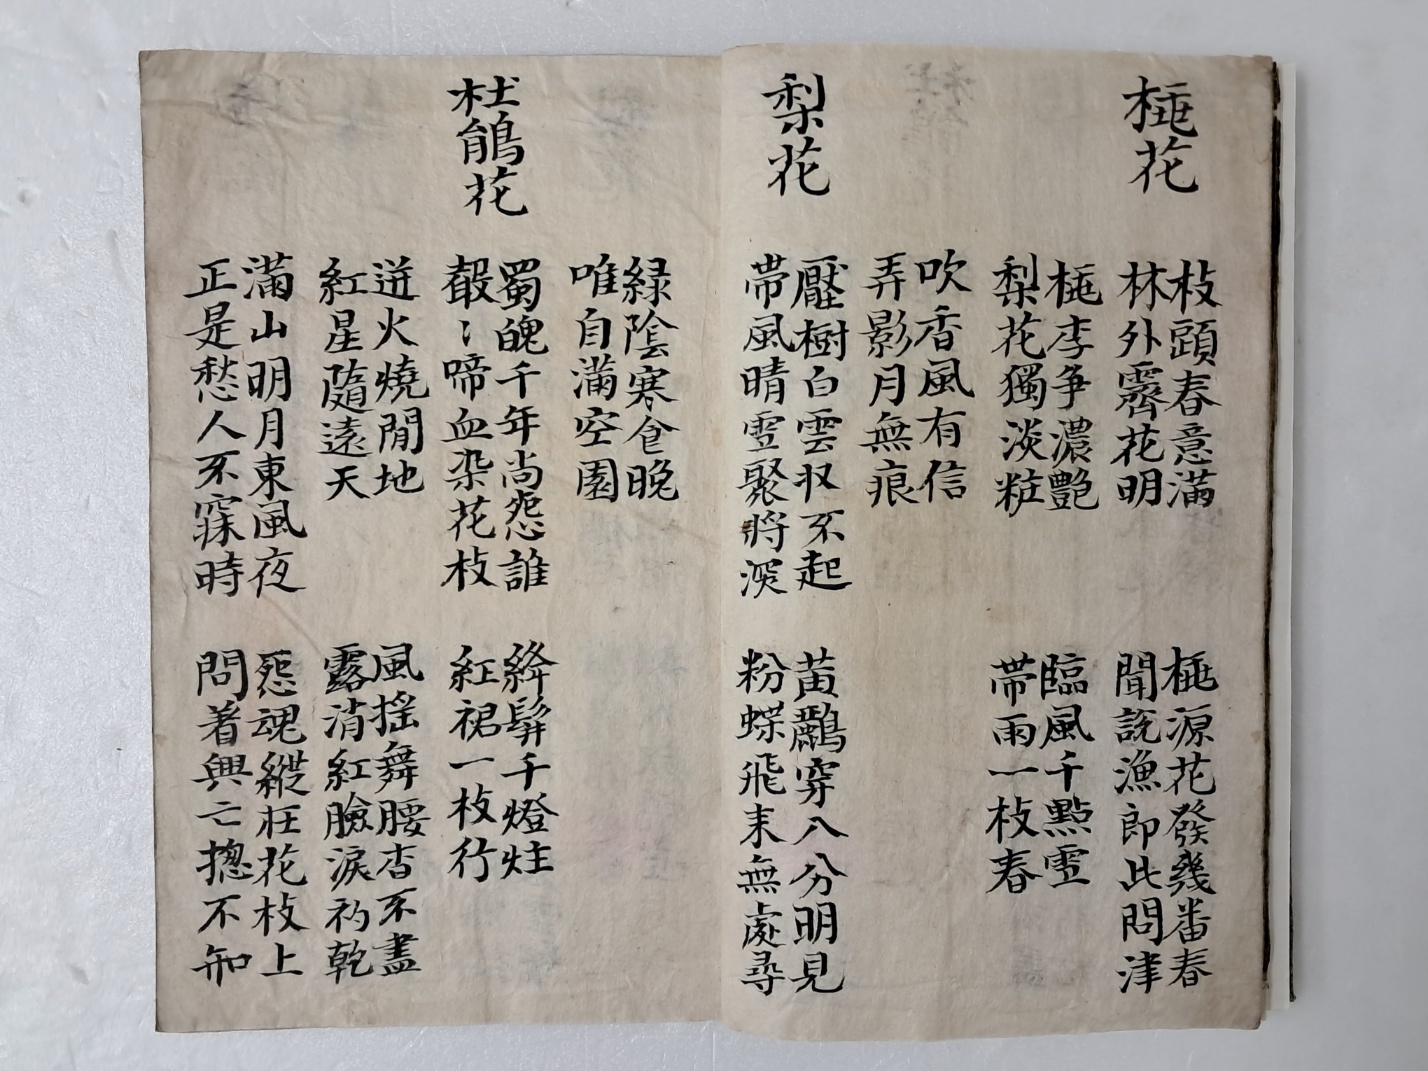 桃花
枝頭春意滿
林外霽花明
桃源花發幾番春
聞說漁郎此問津
桃李爭濃艷
梨花獨淡粧
臨風千點雪
帶雨一枝春
吹香風有信
弄影月無痕
梨花
壓樹白雲収不起
帶風晴雪聚將深
黃鸝穿八分明見
粉蝶飛来無處尋
緑陰寒食晚
唯自滿空園
杜鵑花
蜀魄千年尚怨誰
聲〻啼血染花枝
絳鬅千燈炷
紅裙一枝行
迸火燒閒地
紅星隨遠天
風搖舞腰杳不盡
露消紅臉淚初乾
滿山明月東風夜
正是愁人不寐時
怨魂縱在花枝上
問着興亡摠不知